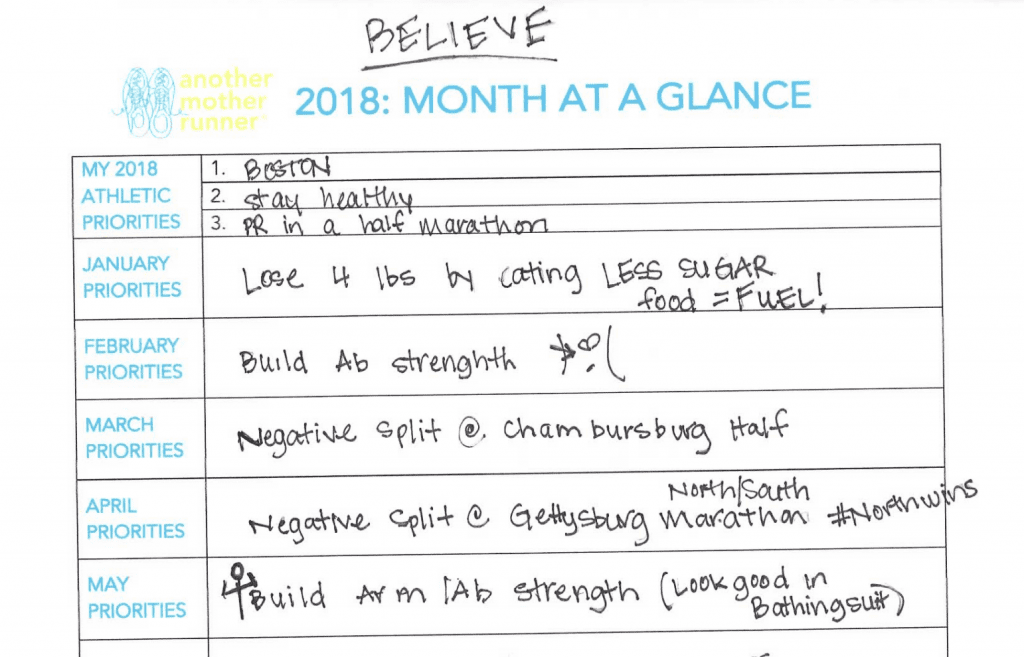 BELIEVE
another
mother
runner
2018: MONTH AT A GLANCE
MY 2018
ATHLETIC
PRIORITIES
1. BOSTON
2. stay healthy
3. PR in a half marathon
JANUARY
PRIORITIES
Lose 4 lbs by eating LESS SUGAR
food = FUEL!
FEBRUARY
PRIORITIES
Build Ab strenghth
MARCH
PRIORITIES
Negative split @ Chambursburg Half
APRIL
PRIORITIES
North/South
Negative split @ Gettysburg Marathon #Northwins
MAY
PRIORITIES
Build Arm/Ab strength (Look good in
Bathingsuit)